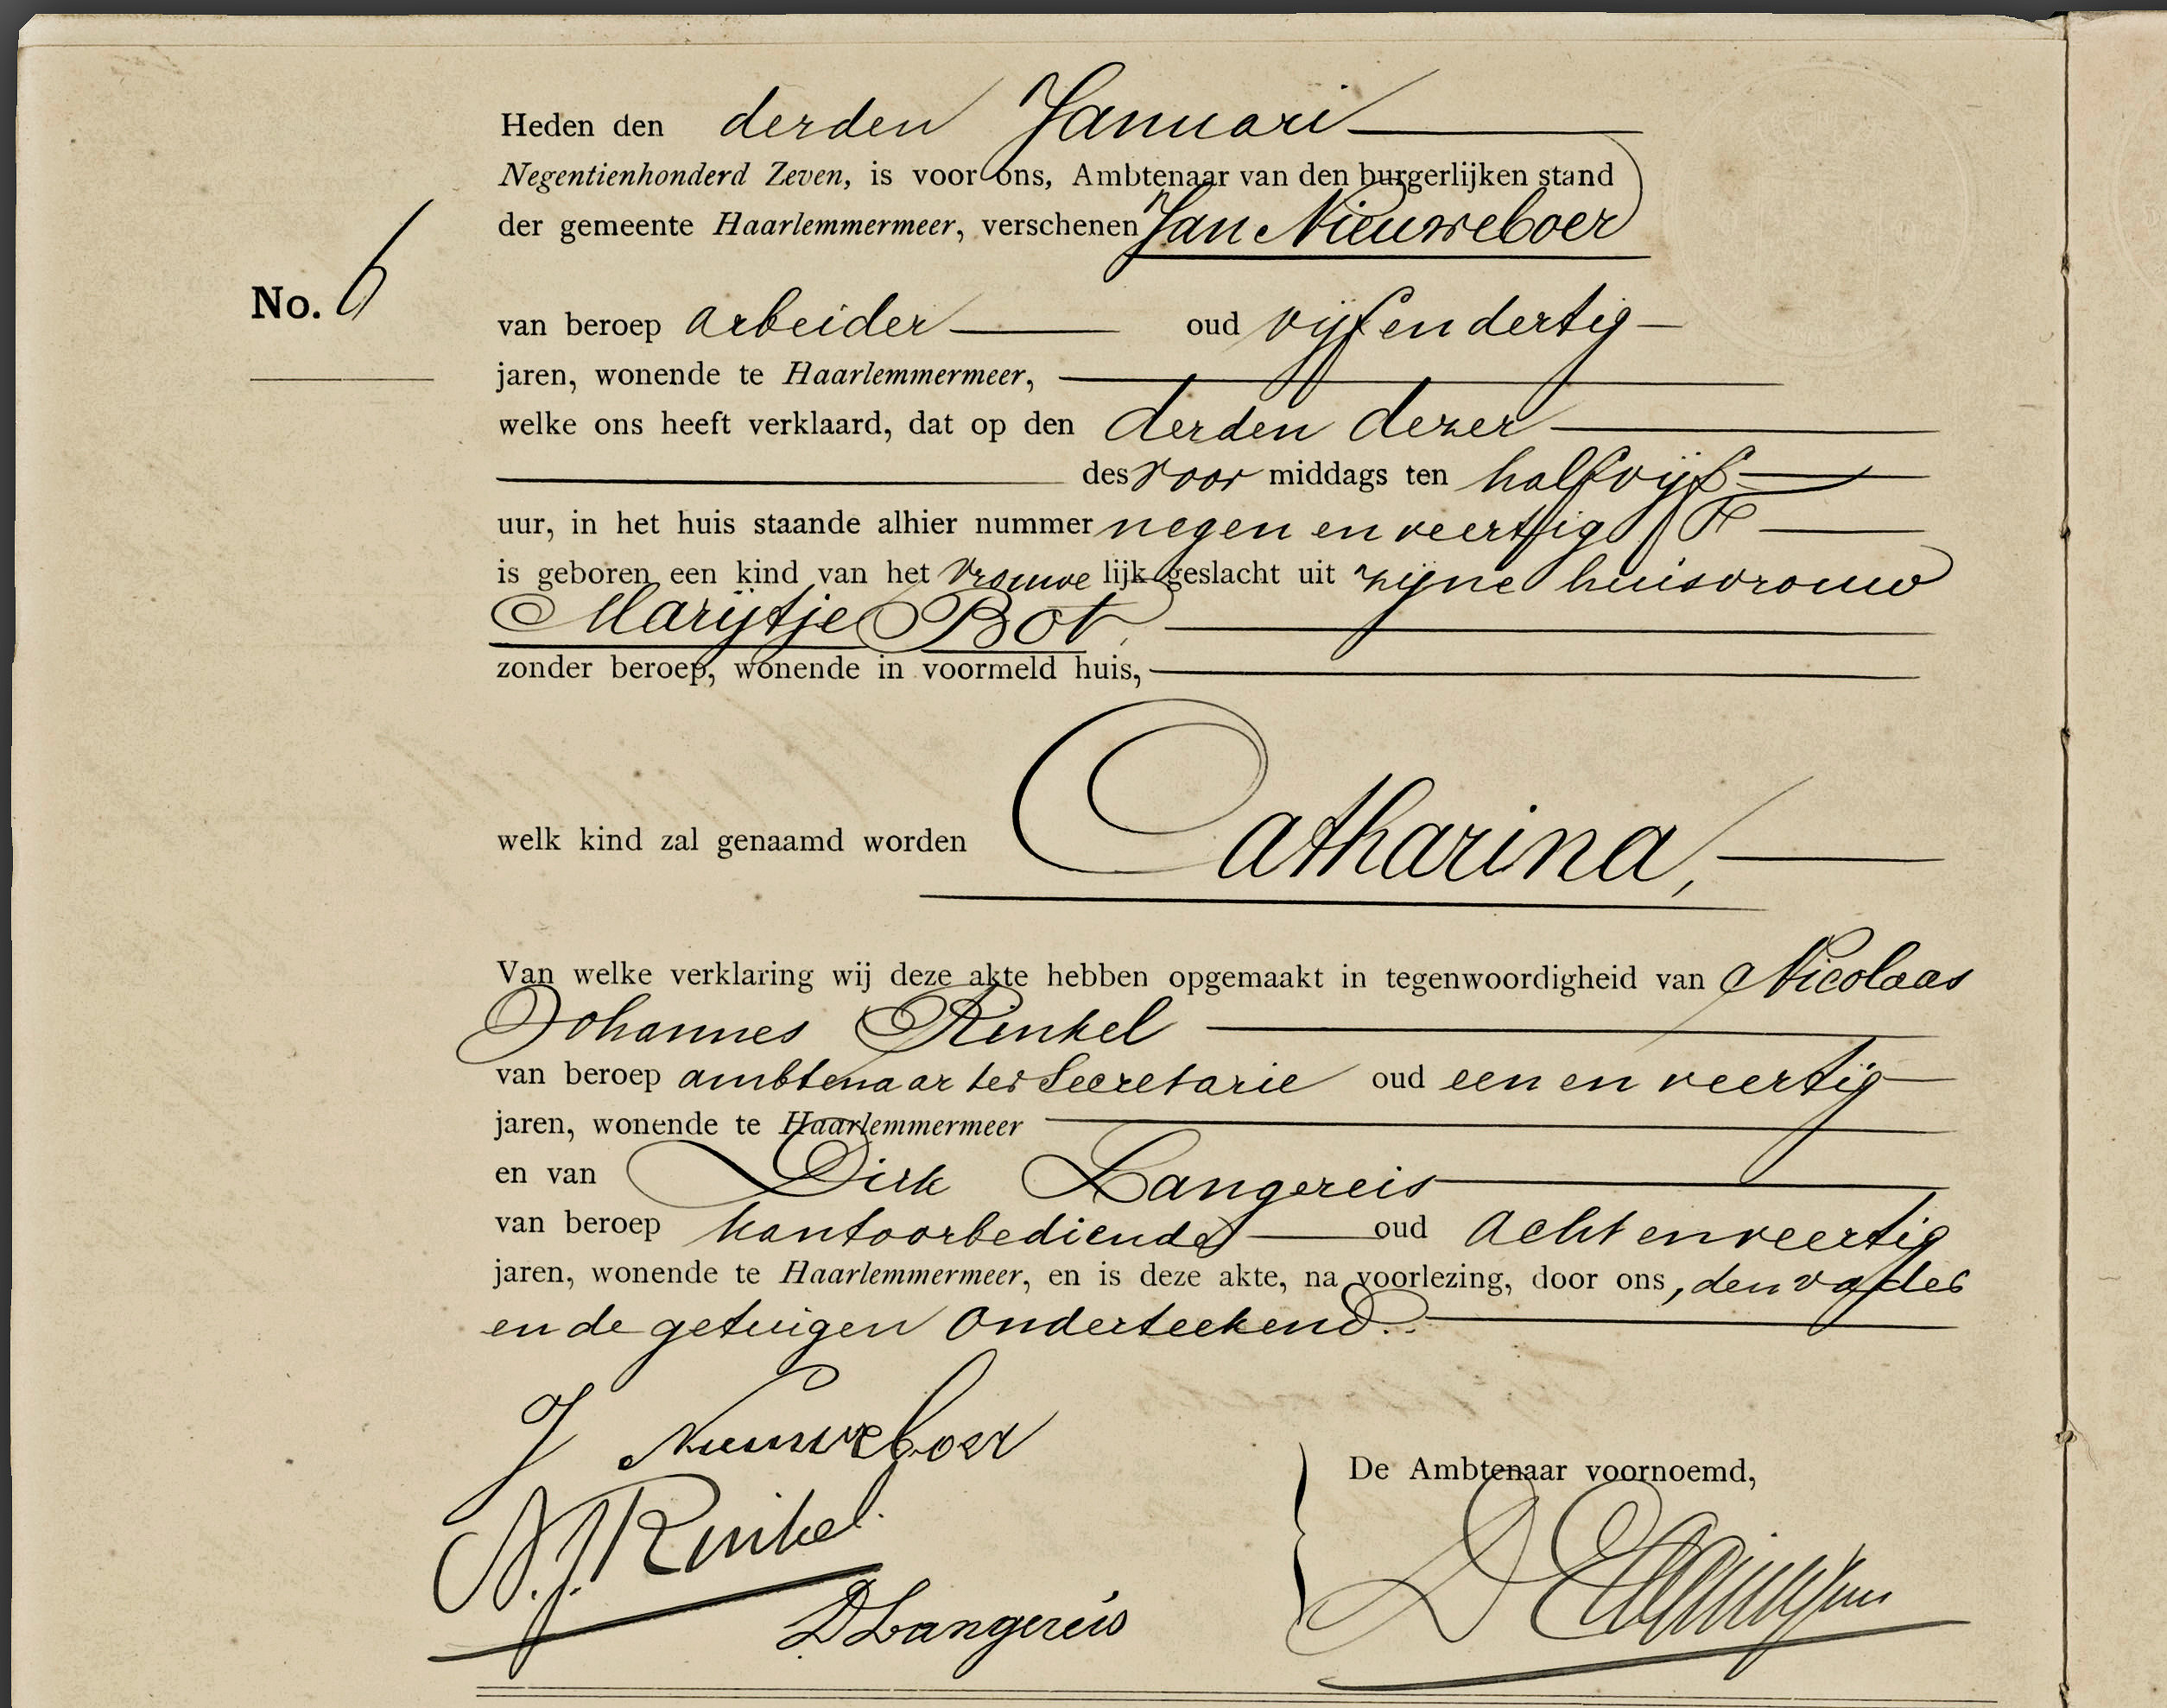 Heden den derden Januari
Negentienhonderd Zeven, is voor ons, Ambtenaar van den burgerlijken stand
der gemeente Haarlemmermeer, verschenen Jan Nieuweboer
No. 6
van beroep arbeider oud vijf en dertig
jaren, wonende te Haarlemmermeer,
welke ons heeft verklaard, dat op den derden dezer
des voor middags ten half vijf
uur, in het huis staande alhier nummer negen en veertig
is geboren een kind van het vrouwe lijk geslacht uit zijne huisvrouw
Marijtje Bot,
zonder beroep, wonende in voormeld huis,
welk kind zal genaamd worden Catharina,
Van welke verklaring wij deze akte hebben opgemaakt in tegenwoordigheid van Nicolaas
Johannes Rinkel
van beroep ambtenaar ter Secretarie oud een en veertig
jaren, wonende te Haarlemmermeer
en van Dirk Langereis
van beroep kantoorbediende oud acht en veertig
jaren, wonende te Haarlemmermeer, en is deze akte, na voorlezing, door ons, den vader
en de getuigen onderteekend.
J Nieuweboer
N. J. Rinkel
De Ambtenaar voornoemd,
D Langereis